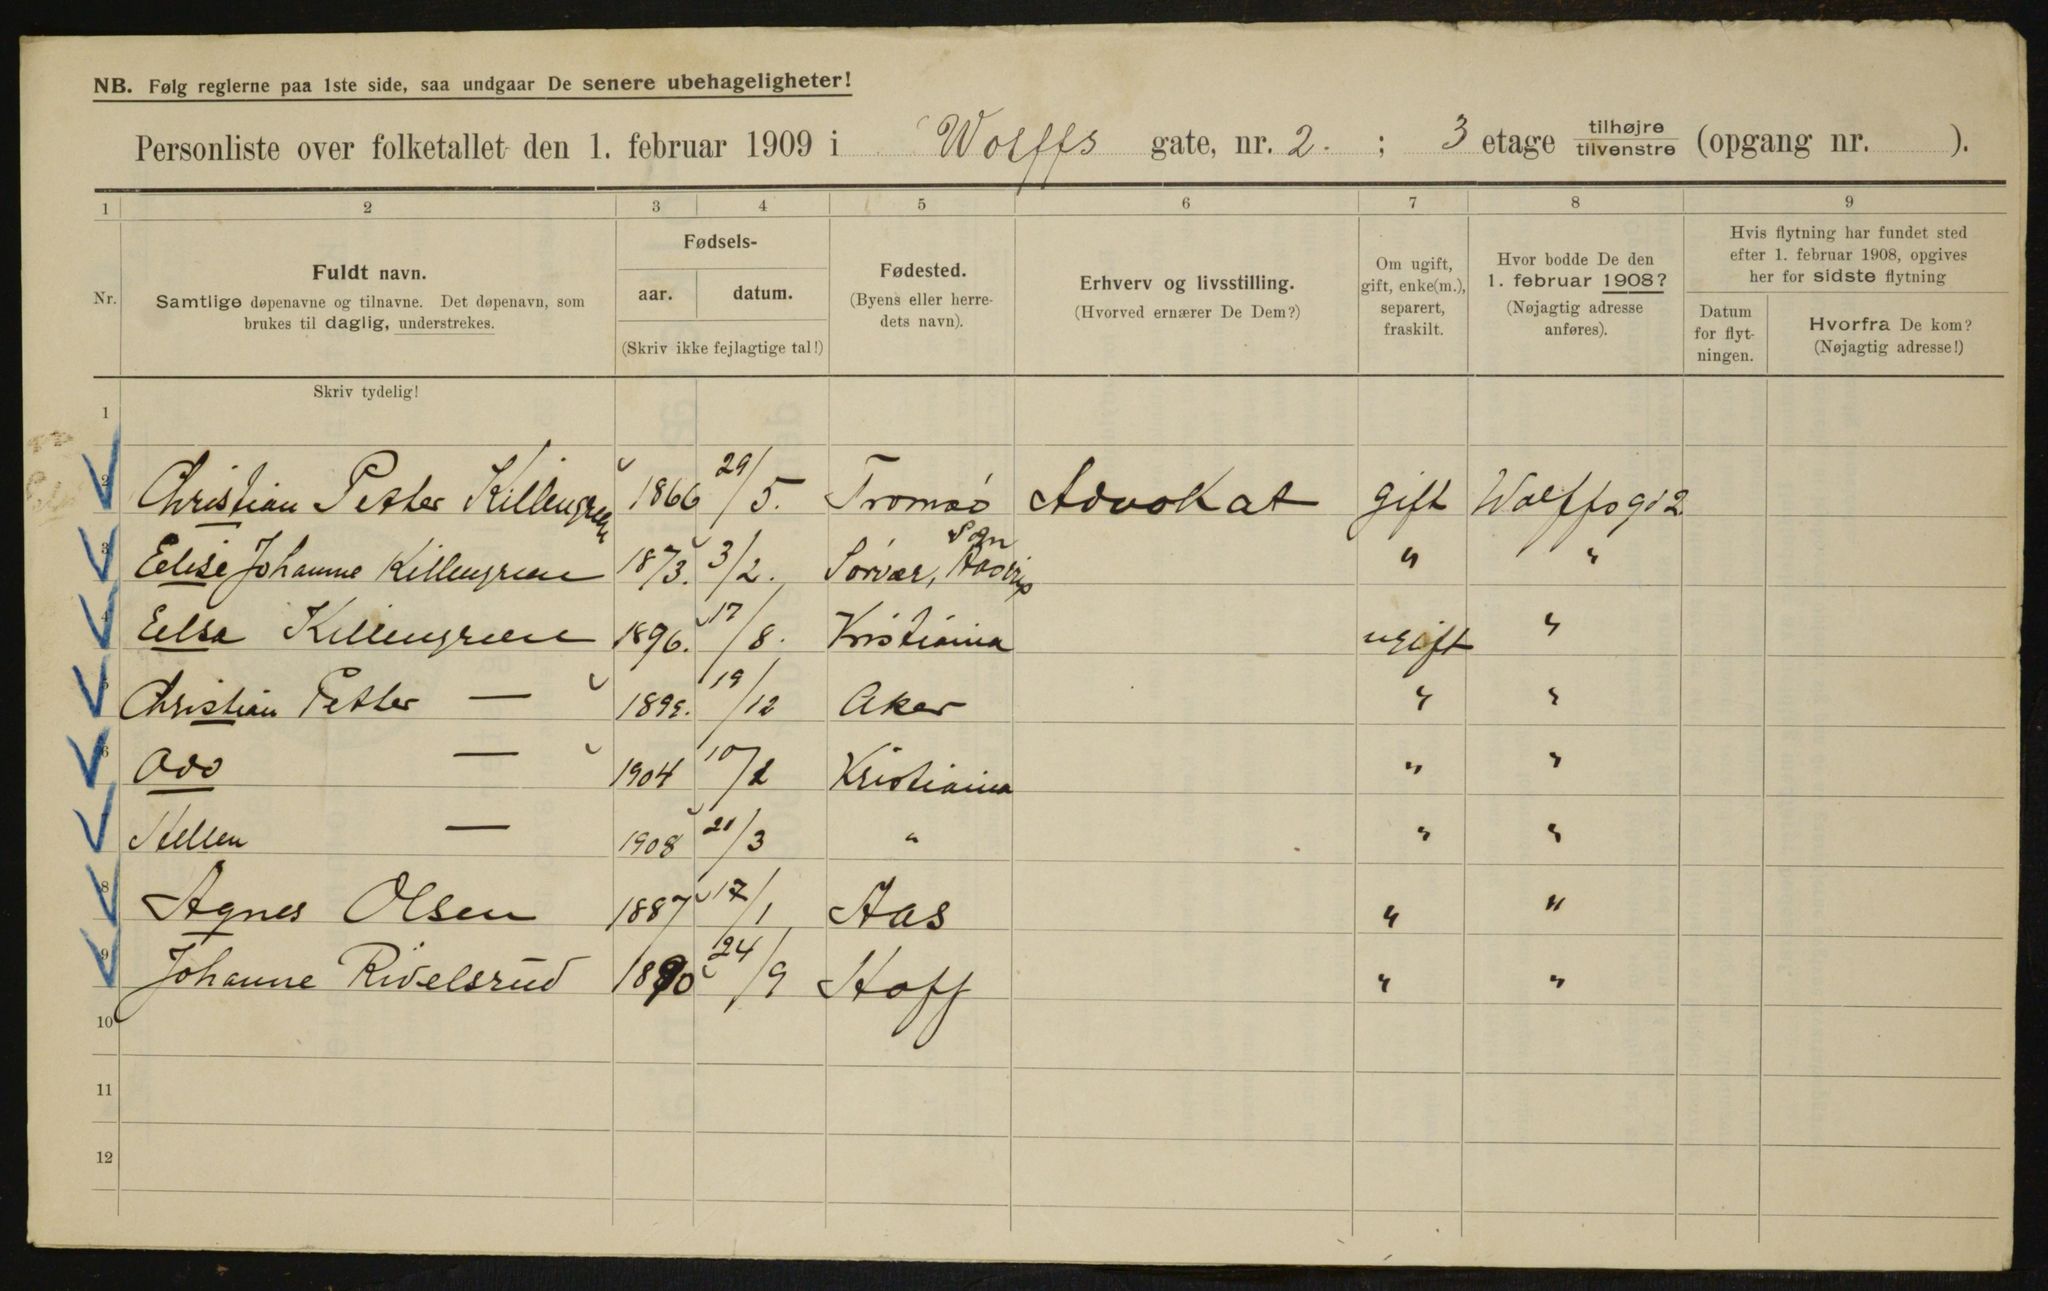 NB. Følg reglerne paa 1ste side, saa undgaar De senere ubehageligheter!
Personliste over folketallet den 1. februar 1909 i Wolffs gate, nr. 2. ; 3 etage tilhøjre tilvenstre (opgang nr. ).
1 2 3 4 5 6 7 8 9
Nr.
Fuldt navn.
Samtlige døpenavne og tilnavne. Det døpenavn, som
brukes til daglig, understrekes.
Fødsels-
aar. datum.
(Skriv ikke fejlagtige tal!)
Fødested.
(Byens eller herre-
dets navn).
Erhverv og livsstilling.
(Hvorved ernærer De Dem?)
Om ugift,
gift, enke(m.),
separert,
fraskilt.
Hvor bodde De den
1. februar 1908?
(Nøjagtig adresse
anføres).
Hvis flytning har fundet sted
efter 1. februar 1908, opgives
her for sidste flytning
Datum
for flyt-
ningen.
Hvorfra De kom?
(Nøjagtig adresse!)
Skriv tydelig!
1
2 Christian Petter Killengreen 1866 29/5. Tromsø Advokat gift Wolffsg 2
3 Johanne Killengreen 1873. 3/2. Sørvær, " "
4 Killengreen 1896. 17/8. Kristiania ugift "
5 Christian Petter — 19/12 Aker " "
6 — 1904 10/2 Kristiania " "
— 1908 21/3 " " "
8 Agnes Olsen 1887 17/1 Aas " "
9 Johanne Rivelsrud 1890 24/9 Hoff " "
10
11
12